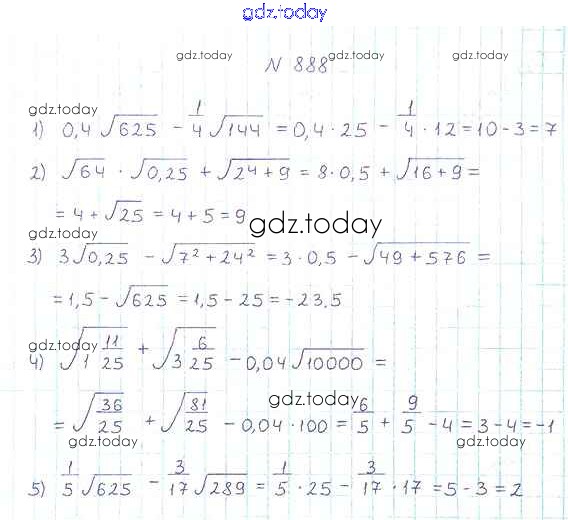 gdz.today
gdz.today gdz.today gdz.today
N 888
gdz.today
1) 0,4 √625 - 1/4 √144 = 0,4 · 25 - 1/4 · 12 = 10 - 3 = 7
2) √64 · √0,25 + √(2⁴ + 9) = 8 · 0,5 + √(16 + 9) =
= 4 + √25 = 4 + 5 = 9
gdz.today
gdz.today
3) 3√0,25 - √(7² + 24²) = 3 · 0,5 - √(49 + 576) =
= 1,5 - √625 = 1,5 - 25 = -23,5
gdz.today
4) √(1 11/25) + √(3 6/25) - 0,04 √10000 =
gdz.today
= √(36/25) + √(81/25) - 0,04 · 100 = 6/5 + 9/5 - 4 = 3 - 4 = -1
gdz.today gdz.today
5) 1/5 √625 - 3/17 √289 = 1/5 · 25 - 3/17 · 17 = 5 - 3 = 2